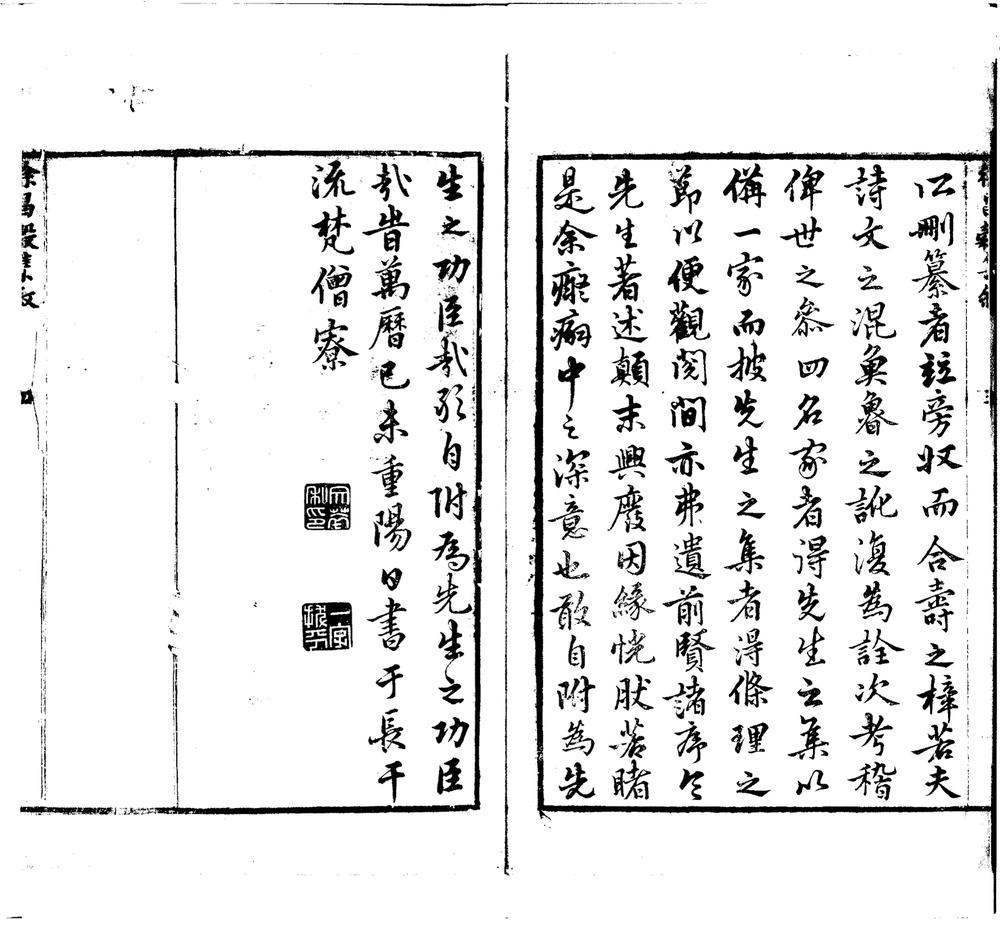 以刪纂者竝旁收而合壽之梓若夫
詩文之混魚魯之訛復為詮次考稽
俾世之叅四名家者得先生之集以
備一家而披先生之集者得條理之
節以便觀閱間亦弗遺前賢諸序令
先生著述顛末興廢因緣恍肰若睹
是余癡癖中之深意也敢自附為先
生之功臣哉敢自附為先生之功臣
哉昔萬曆己未重陽日書于長干
流梵僧寮
徐昌穀集敘
四